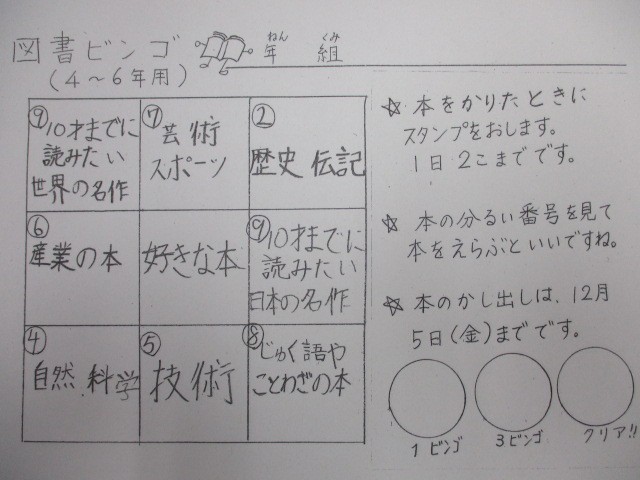 図書ビンゴ
(4～6年用)
ねん くみ
年 組
⑨10才までに
読みたい
世界の名作
⑦芸術
スポーツ
②
歴史 伝記
⑥
産業の本
好きな本
⑨10才までに
読みたい
日本の名作
④
自然 科学
⑤
技術
⑧じゅく語や
ことわざの本
☆ 本をかりたときに
スタンプをおします。
1日 2こまでです。
☆ 本の分るい番号を見て
本をえらぶといいですね。
☆ 本のかし出しは、12月
5日(金)までです。
1ビンゴ
3ビンゴ
クリア!!